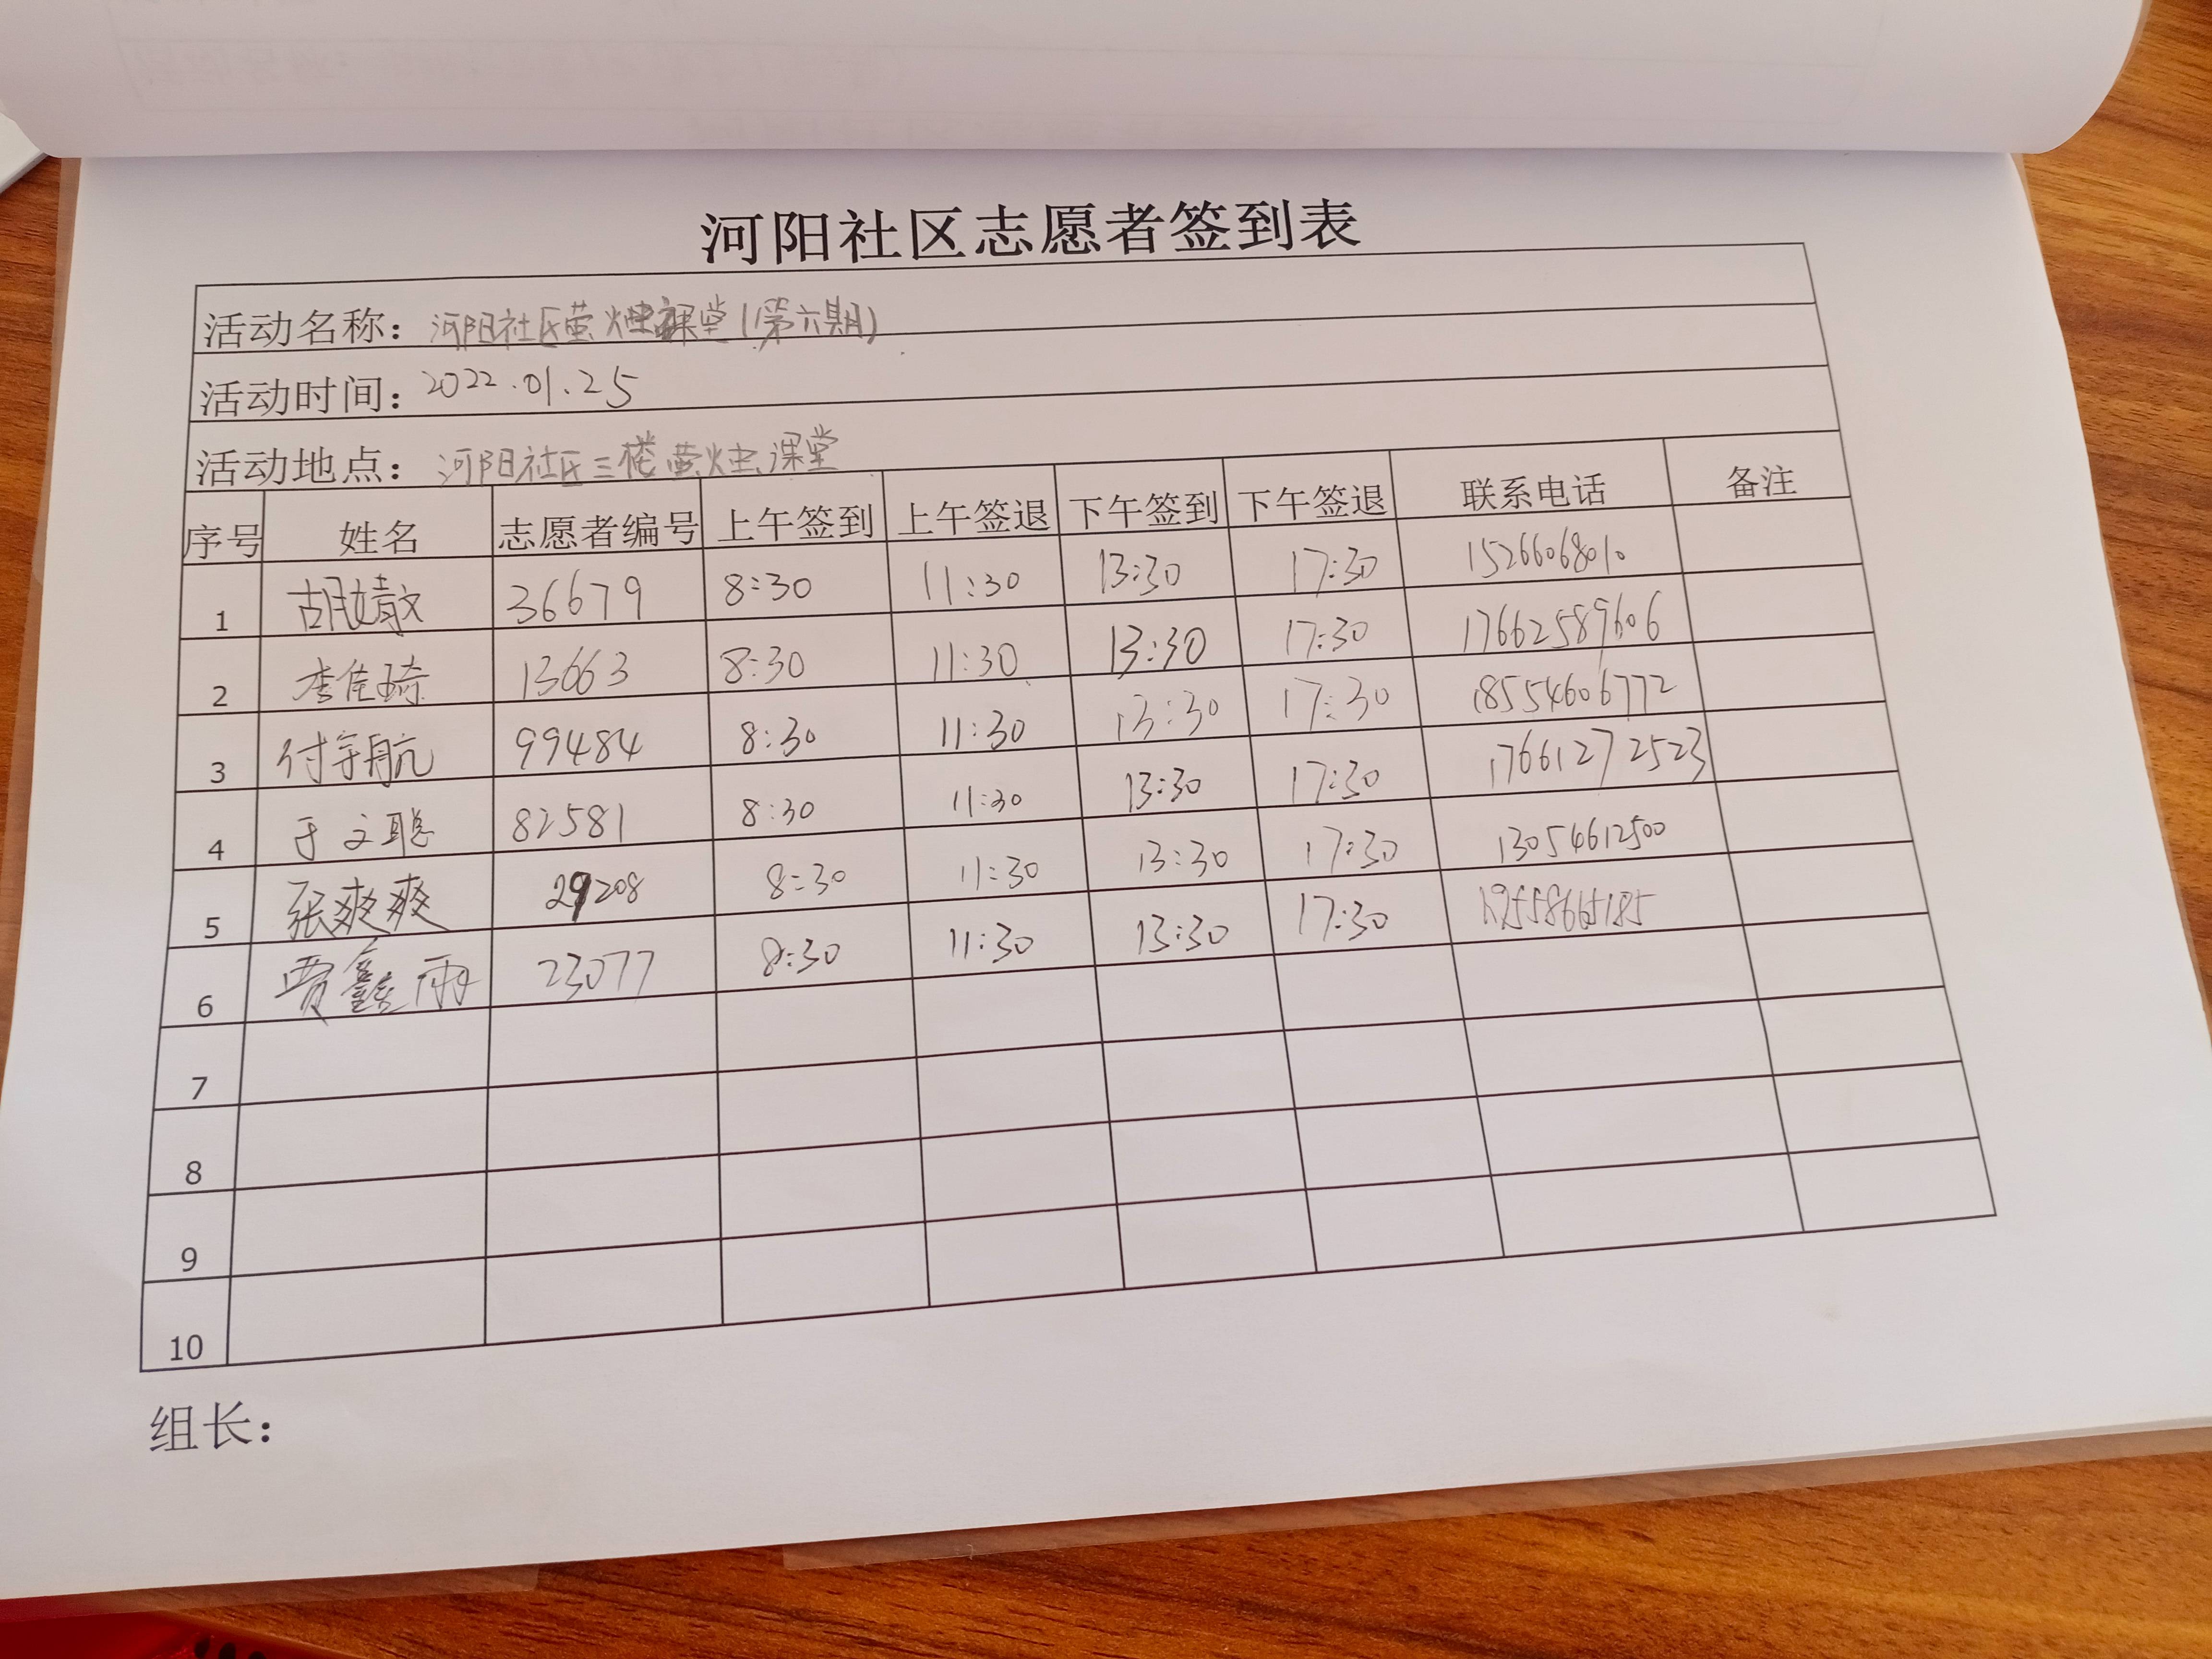 河阳社区志愿者签到表
活动名称：河阳社区萤火虫课堂(第六期)
活动时间：2022.01.25
活动地点：河阳社区三楼萤火虫课堂
序号 姓名 志愿者编号 上午签到 上午签退 下午签到 下午签退 联系电话 备注
1 胡婧敏 36679 8:30 11:30 13:30 17:30 15266068010
2 李佳琦 13663 8:30 11:30 13:30 17:30 17662589606
3 付宇航 99484 8:30 11:30 13:30 17:30 18554606772
4 于文聪 82581 8:30 11:30 13:30 17:30 17661272523
5 张爽爽 29208 8:30 11:30 13:30 17:30 13054612500
6 贾鑫雨 23077 8:30 11:30 13:30 17:30
7
8
9
10
组长：